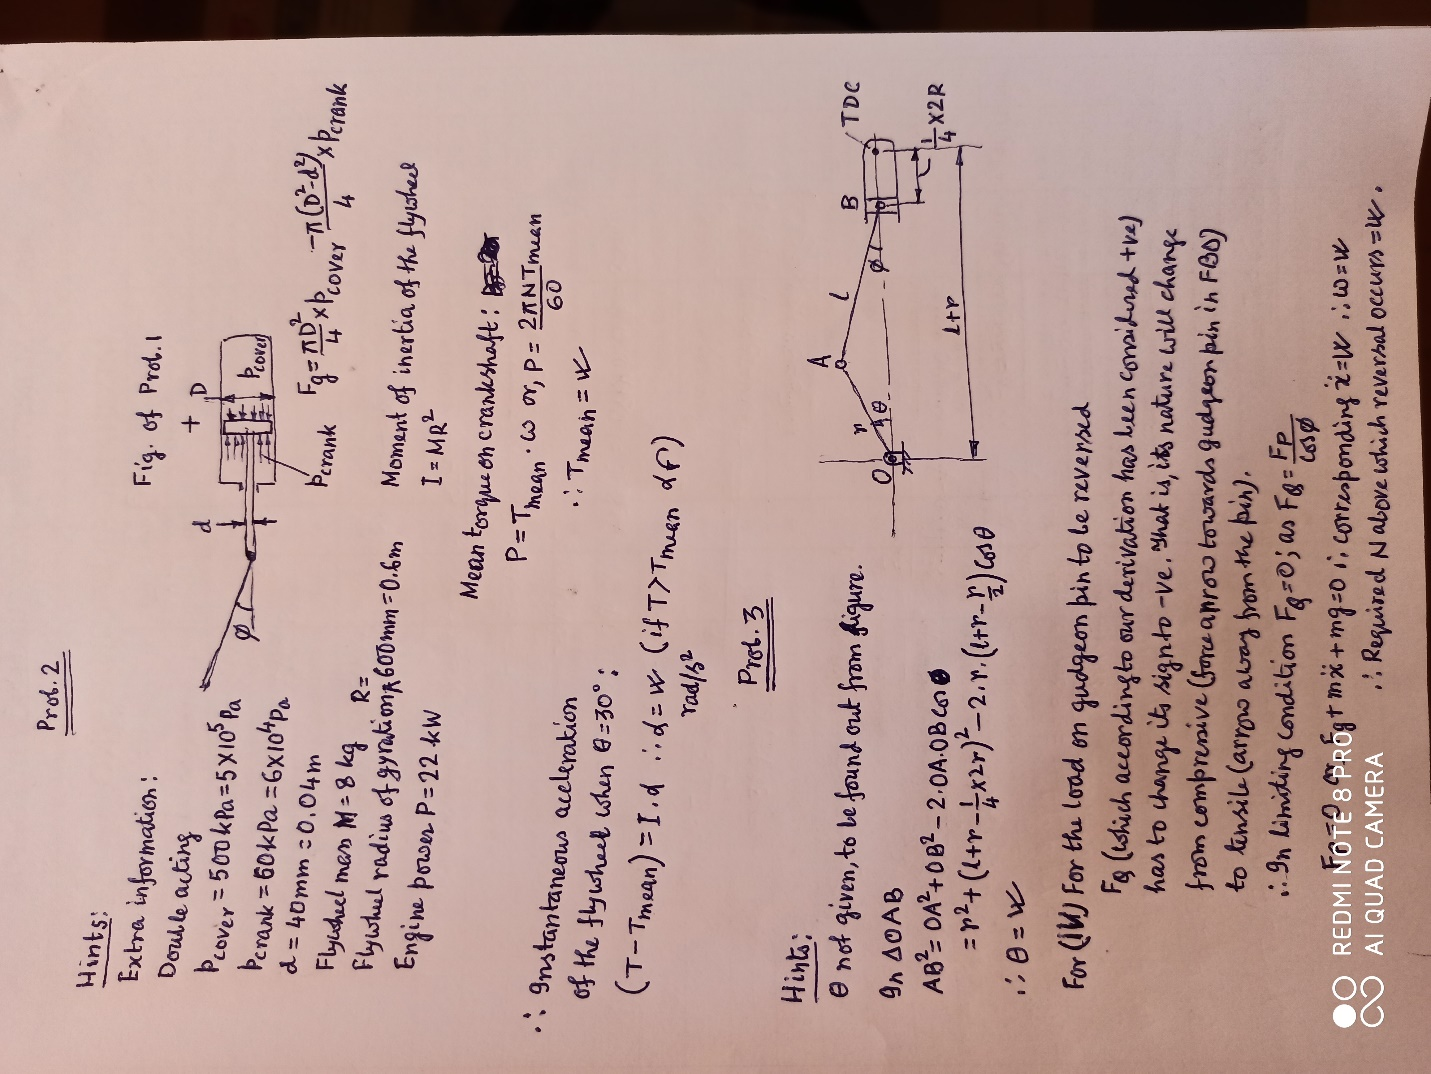 Prob. 2
Hints:
Extra information:
Double acting
Pcover = 500 kPa = 5×10⁵ Pa
Pcrank = 60 kPa = 6×10⁴ Pa
d = 40mm = 0.04m
Flywheel mass M = 8 kg
Flywheel radius of gyration R = 600mm = 0.6m
Engine power P = 22 kW
Fig. of Prob. 1
+
d
D
Ø
Pcover
Pcrank
Fg = πD²/4 × Pcover - π(D²-d²)/4 × Pcrank
Moment of inertia of the flywheel
I = MR²
Mean torque on crankshaft:
P = Tmean · ω or, P = 2πNTmean/60
∴ Tmean = ✓
∴ Instantaneous acceleration
of the flywheel when θ = 30°:
(T - Tmean) = I.α ∴ α = ✓ (if T > Tmean α↱)
rad/s²
Prob. 3
Hints:
θ not given, to be found out from figure.
In ΔOAB
AB² = OA² + OB² - 2.OA.OB cosθ
= r² + (l+r-1/4×2r)² - 2.r.(l+r-r/2) cosθ
∴ θ = ✓
O
r
θ
A
l
Ø
B
TDC
1/4×2R
L+r
For (iv) For the load on gudgeon pin to be reversed
FQ (which according to our derivation has been considered +ve)
has to change its sign to -ve. That is, its nature will change
from compressive (force arrow towards gudgeon pin in FBD)
to tensile (arrow away from the pin).
∴ In limiting condition FQ = 0; as FQ = FP/cosØ
FP = 0 or Fg + mẍ + mg = 0 ∴ corresponding ẍ = ✓ ∴ ω = ✓
∴ Required N above which reversal occurs = ✓.
REDMI NOTE 8 PRO
AI QUAD CAMERA